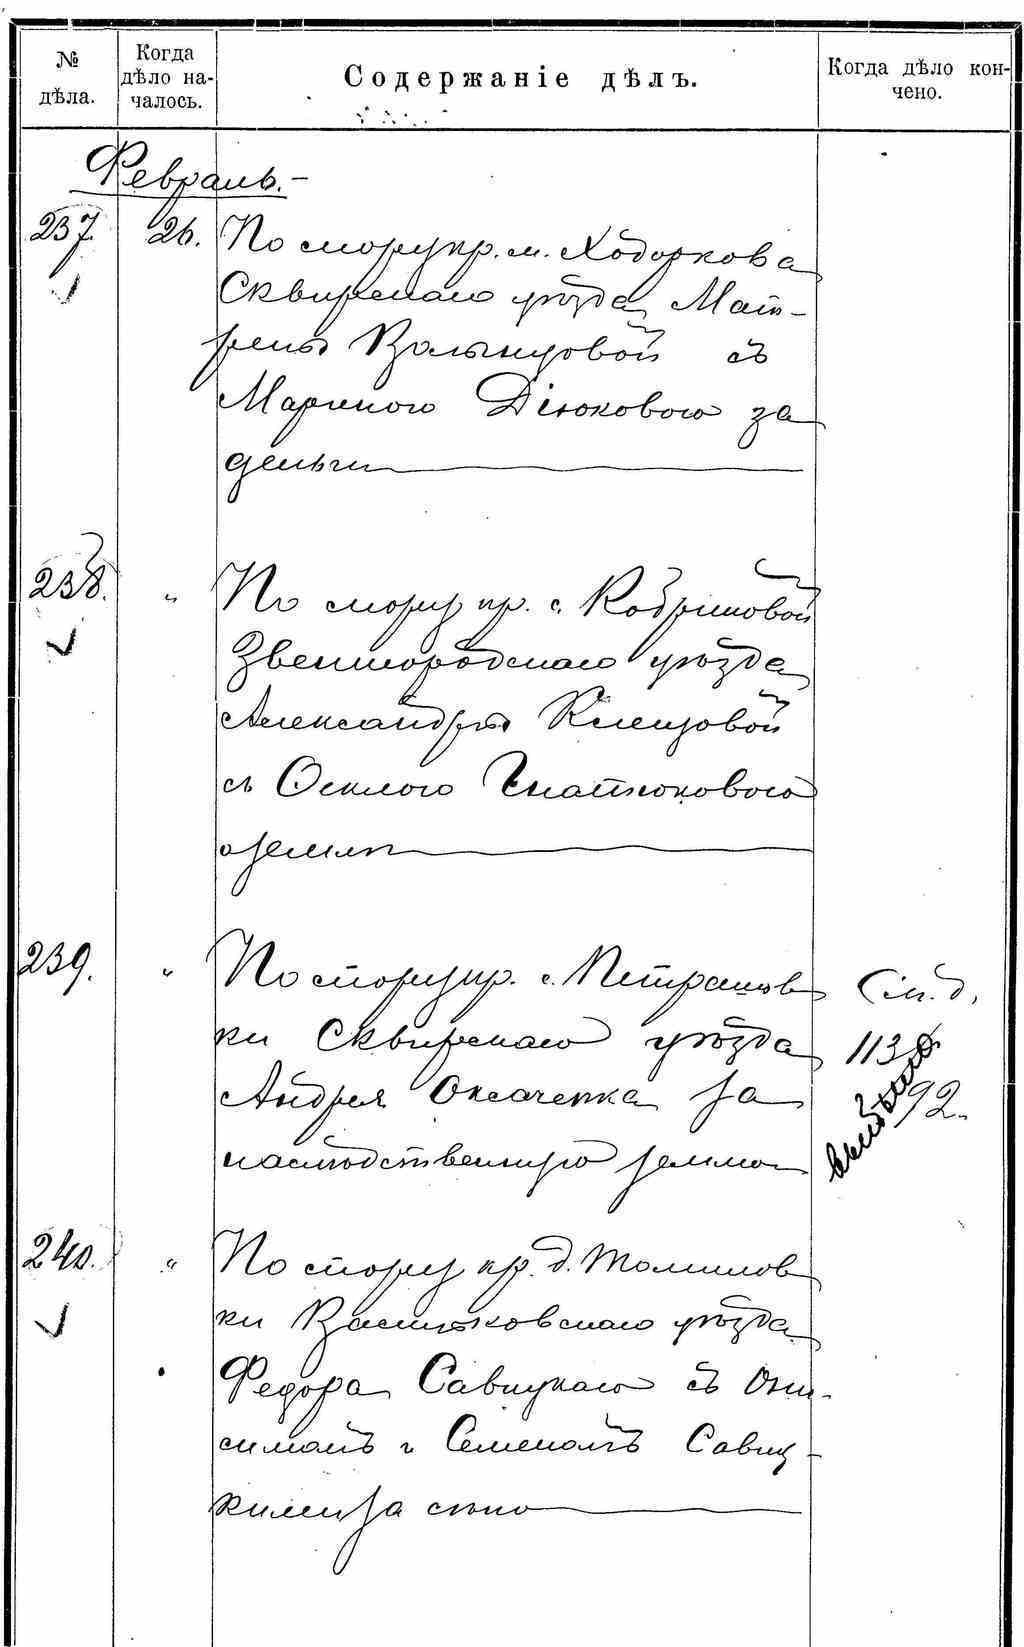 № дѣла.
Когда дѣло на-
чалось.
Содержаніе дѣлъ.
Когда дѣло кон-
чено.
Февраль.-
237. 26. По спору кр. м. Ходоркова
Сквирскаго уѣзда, Мат-
рены Волынцовой съ
Мариною Дѣюковою за
деньги
238. " По спору кр. с. Кобриновой
Звенигородскаго уѣзда
Александры Клецовой
съ Феклою Гнатюковою
о землѣ
239. " По спору кр. с. Петрашов
ки Сквирскаго уѣзда
Андрея Оксаченка за
наслѣдственную землю
См. д.
113
92.
240. " По спору кр. д. Томиловки
ки Васильковскаго уѣзда
Федора Савицкаго съ Они-
симомъ и Семеномъ Савиц-
кими за сѣно